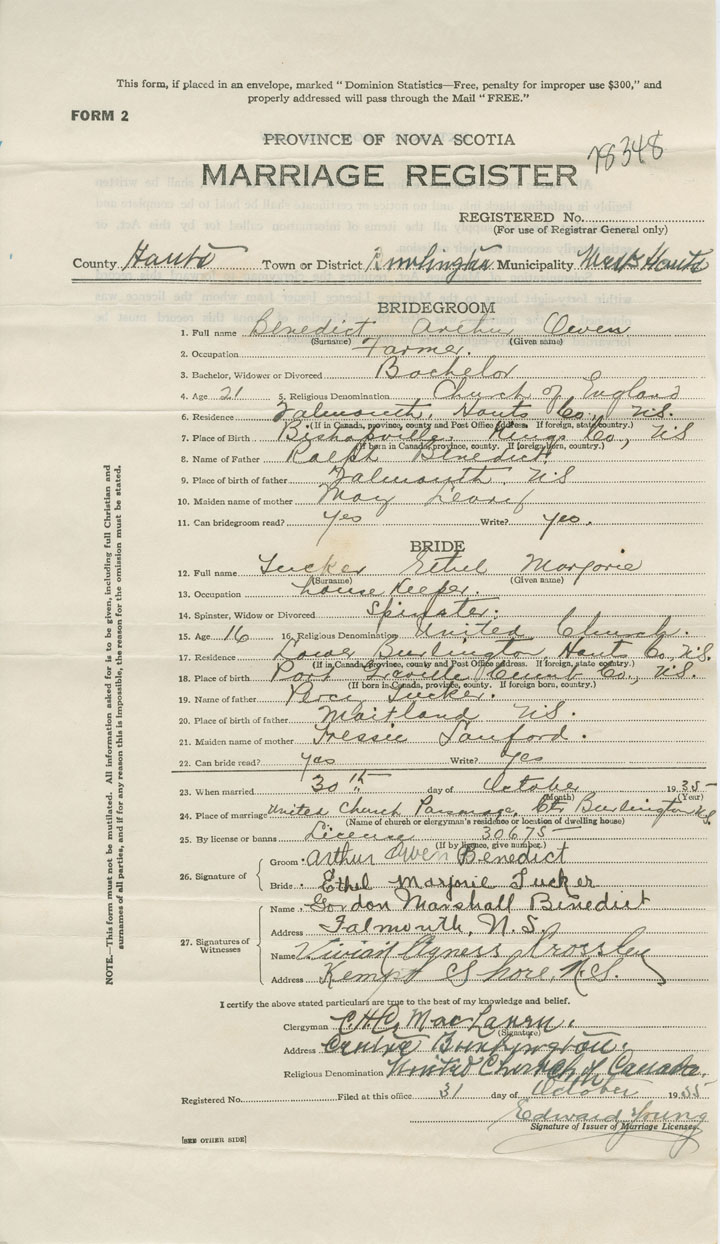 This form, if placed in an envelope, marked "Dominion Statistics—Free, penalty for improper use $300," and
properly addressed will pass through the Mail "FREE."
FORM 2
PROVINCE OF NOVA SCOTIA
78348
MARRIAGE REGISTER
REGISTERED No.
(For use of Registrar General only)
County Hants Town or District Burlington Municipality West Hants
BRIDEGROOM
1. Full name Benedict Arthur Owen
(Surname) (Given name)
2. Occupation Farmer.
3. Bachelor, Widower or Divorced Bachelor
4. Age 21 5. Religious Denomination Church of England
6. Residence Falmouth, Hants Co., N.S.
(If in Canada, province, county and Post Office address. If foreign, state country.)
7. Place of Birth Bishopville, Kings Co., N.S
(If born in Canada, province, county. If foreign born, country.)
8. Name of Father Ralph Benedict
9. Place of birth of father Falmouth N.S
10. Maiden name of mother May
11. Can bridegroom read? yes Write? yes.
BRIDE
12. Full name Tucker Ethel Marjorie
(Surname) (Given name)
13. Occupation House Keeper.
14. Spinster, Widow or Divorced Spinster.
15. Age 16 16. Religious Denomination United Church.
17. Residence Lower Burlington Hants Co., N.S.
(If in Canada, province, county and Post Office address. If foreign, state country.)
18. Place of birth Port Greville Cumb Co., N.S.
(If born in Canada, province, county. If foreign born, country.)
19. Name of father Percy Tucker.
20. Place of birth of father Maitland N.S.
21. Maiden name of mother Tressie Sanford.
22. Can bride read? yes Write? yes
23. When married 30th day of October 1935
(Month) (Year)
24. Place of marriage United Church Parsonage, Ctr Burlington N.S.
(Name of church or clergyman's residence or location of dwelling house)
25. By license or banns License 30675
(If by licence, give number.)
26. Signature of
Groom Arthur Owen Benedict
Bride Ethel Marjorie Tucker
27. Signatures of Witnesses
Name Gordon Marshall Benedict
Address Falmouth, N.S.
Name Vivian Agness Crossley
Address Kempt Shore, N.S.
I certify the above stated particulars are true to the best of my knowledge and belief.
Clergyman C.H.C. MacLaren.
(Signature)
Address Centre Burlington.
Religious Denomination United Church of Canada.
Registered No. Filed at this office 31 day of October 1935
Edward Young
Signature of Issuer of Marriage Licenses
[SEE OTHER SIDE]
NOTE.—This form must not be mutilated. All information asked for is to be given, including full Christian and
surnames of all parties, and if for any reason this is impossible, the reason for the omission must be stated.